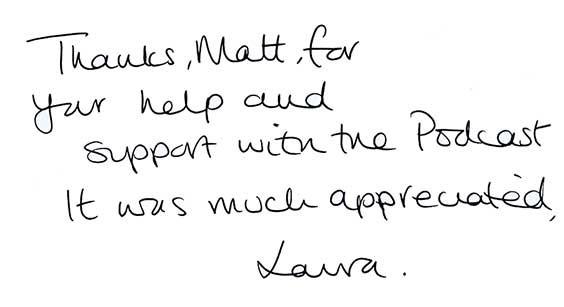 Thanks, Matt, for
your help and
support with the Podcast
It was much appreciated,
Laura.